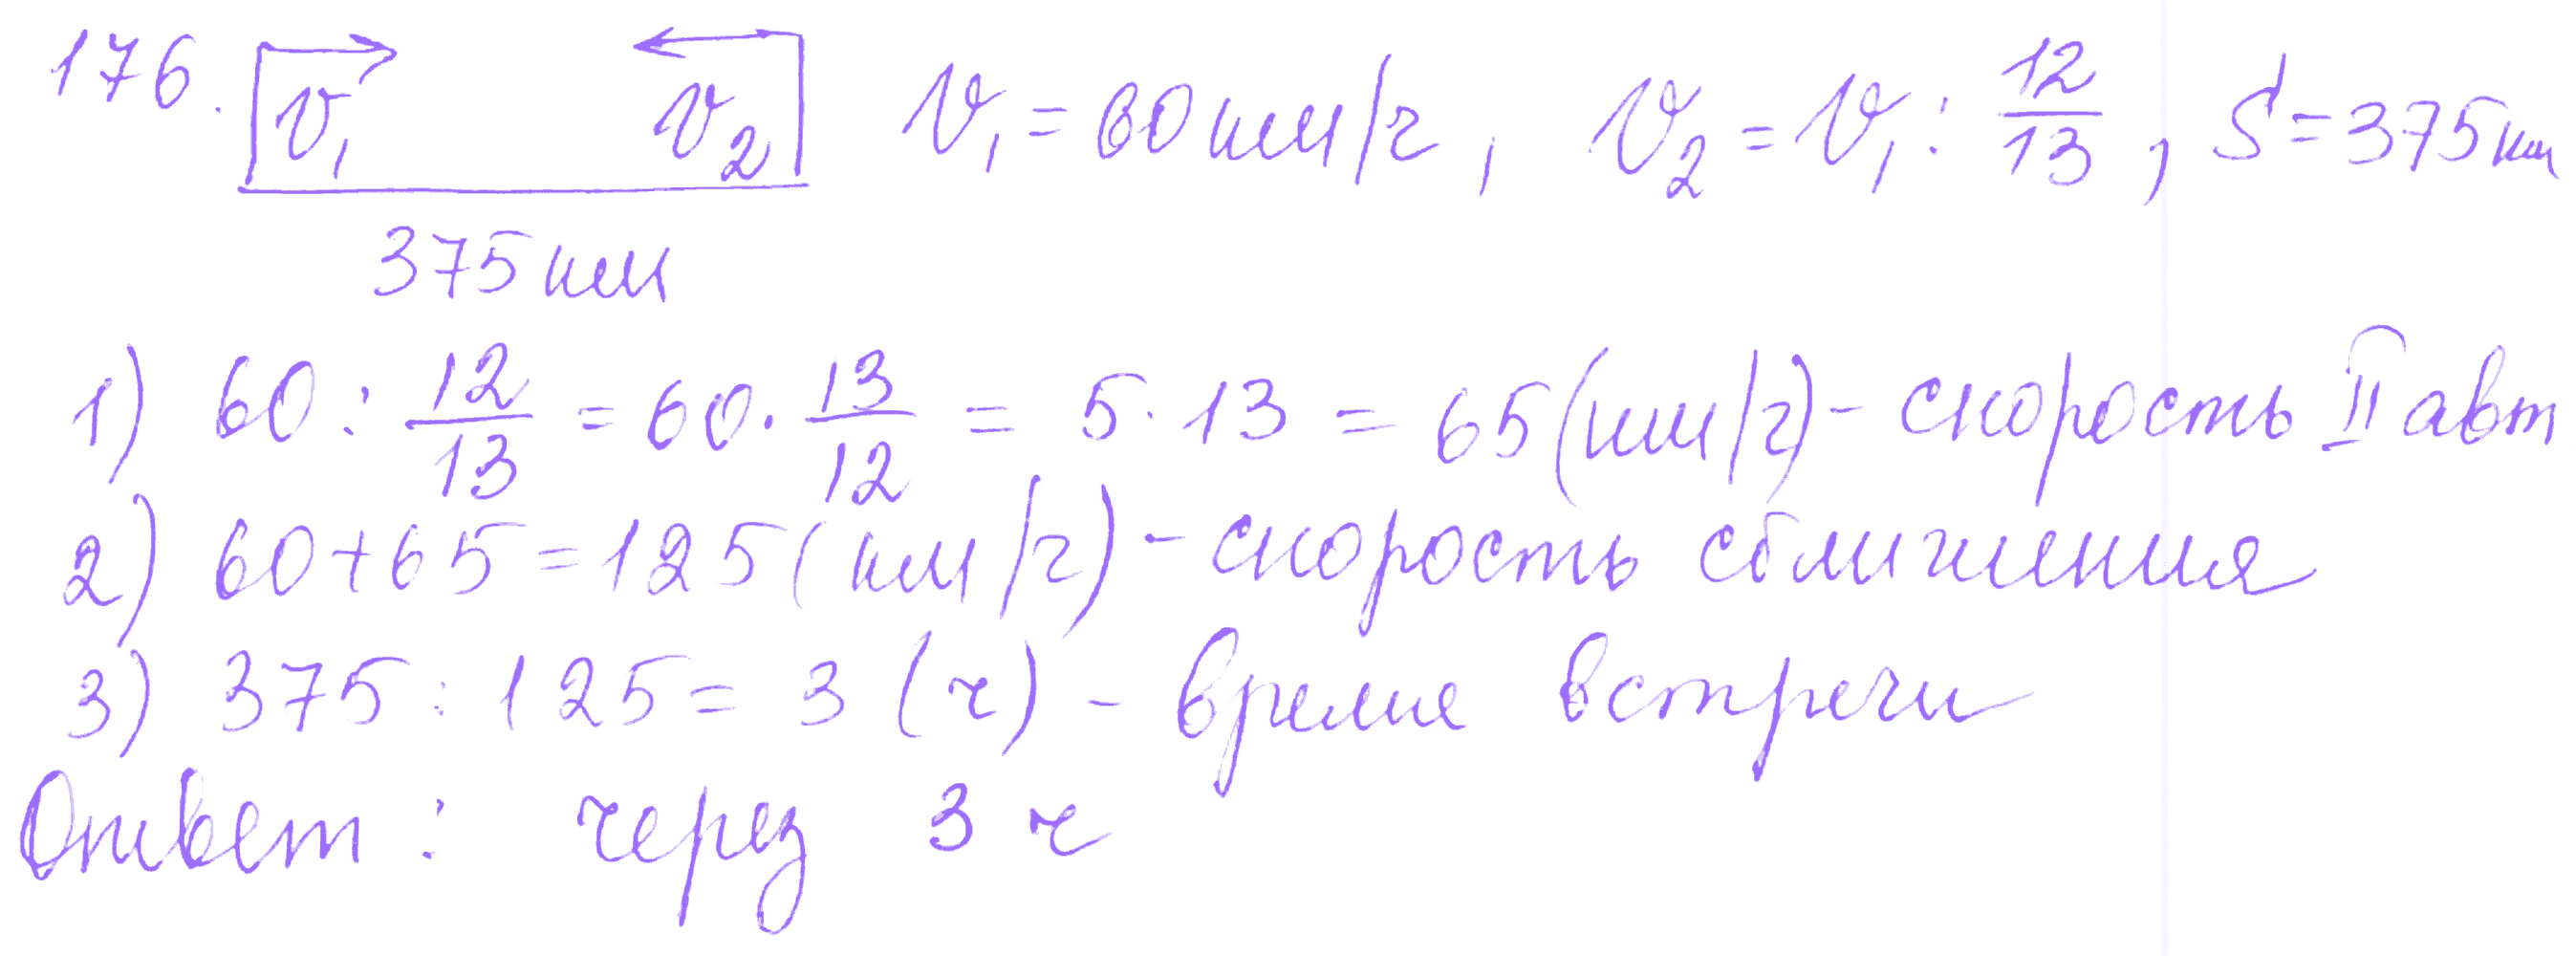 176. v₁ v₂ v₁ = 60 км/ч, v₂ = v₁ : 12/13, S = 375 км
375 км
1) 60 : 12/13 = 60 · 13/12 = 5 · 13 = 65 (км/ч) - скорость II авт
2) 60 + 65 = 125 (км/ч) - скорость сближения
3) 375 : 125 = 3 (ч) - время встречи
Ответ : через 3 ч